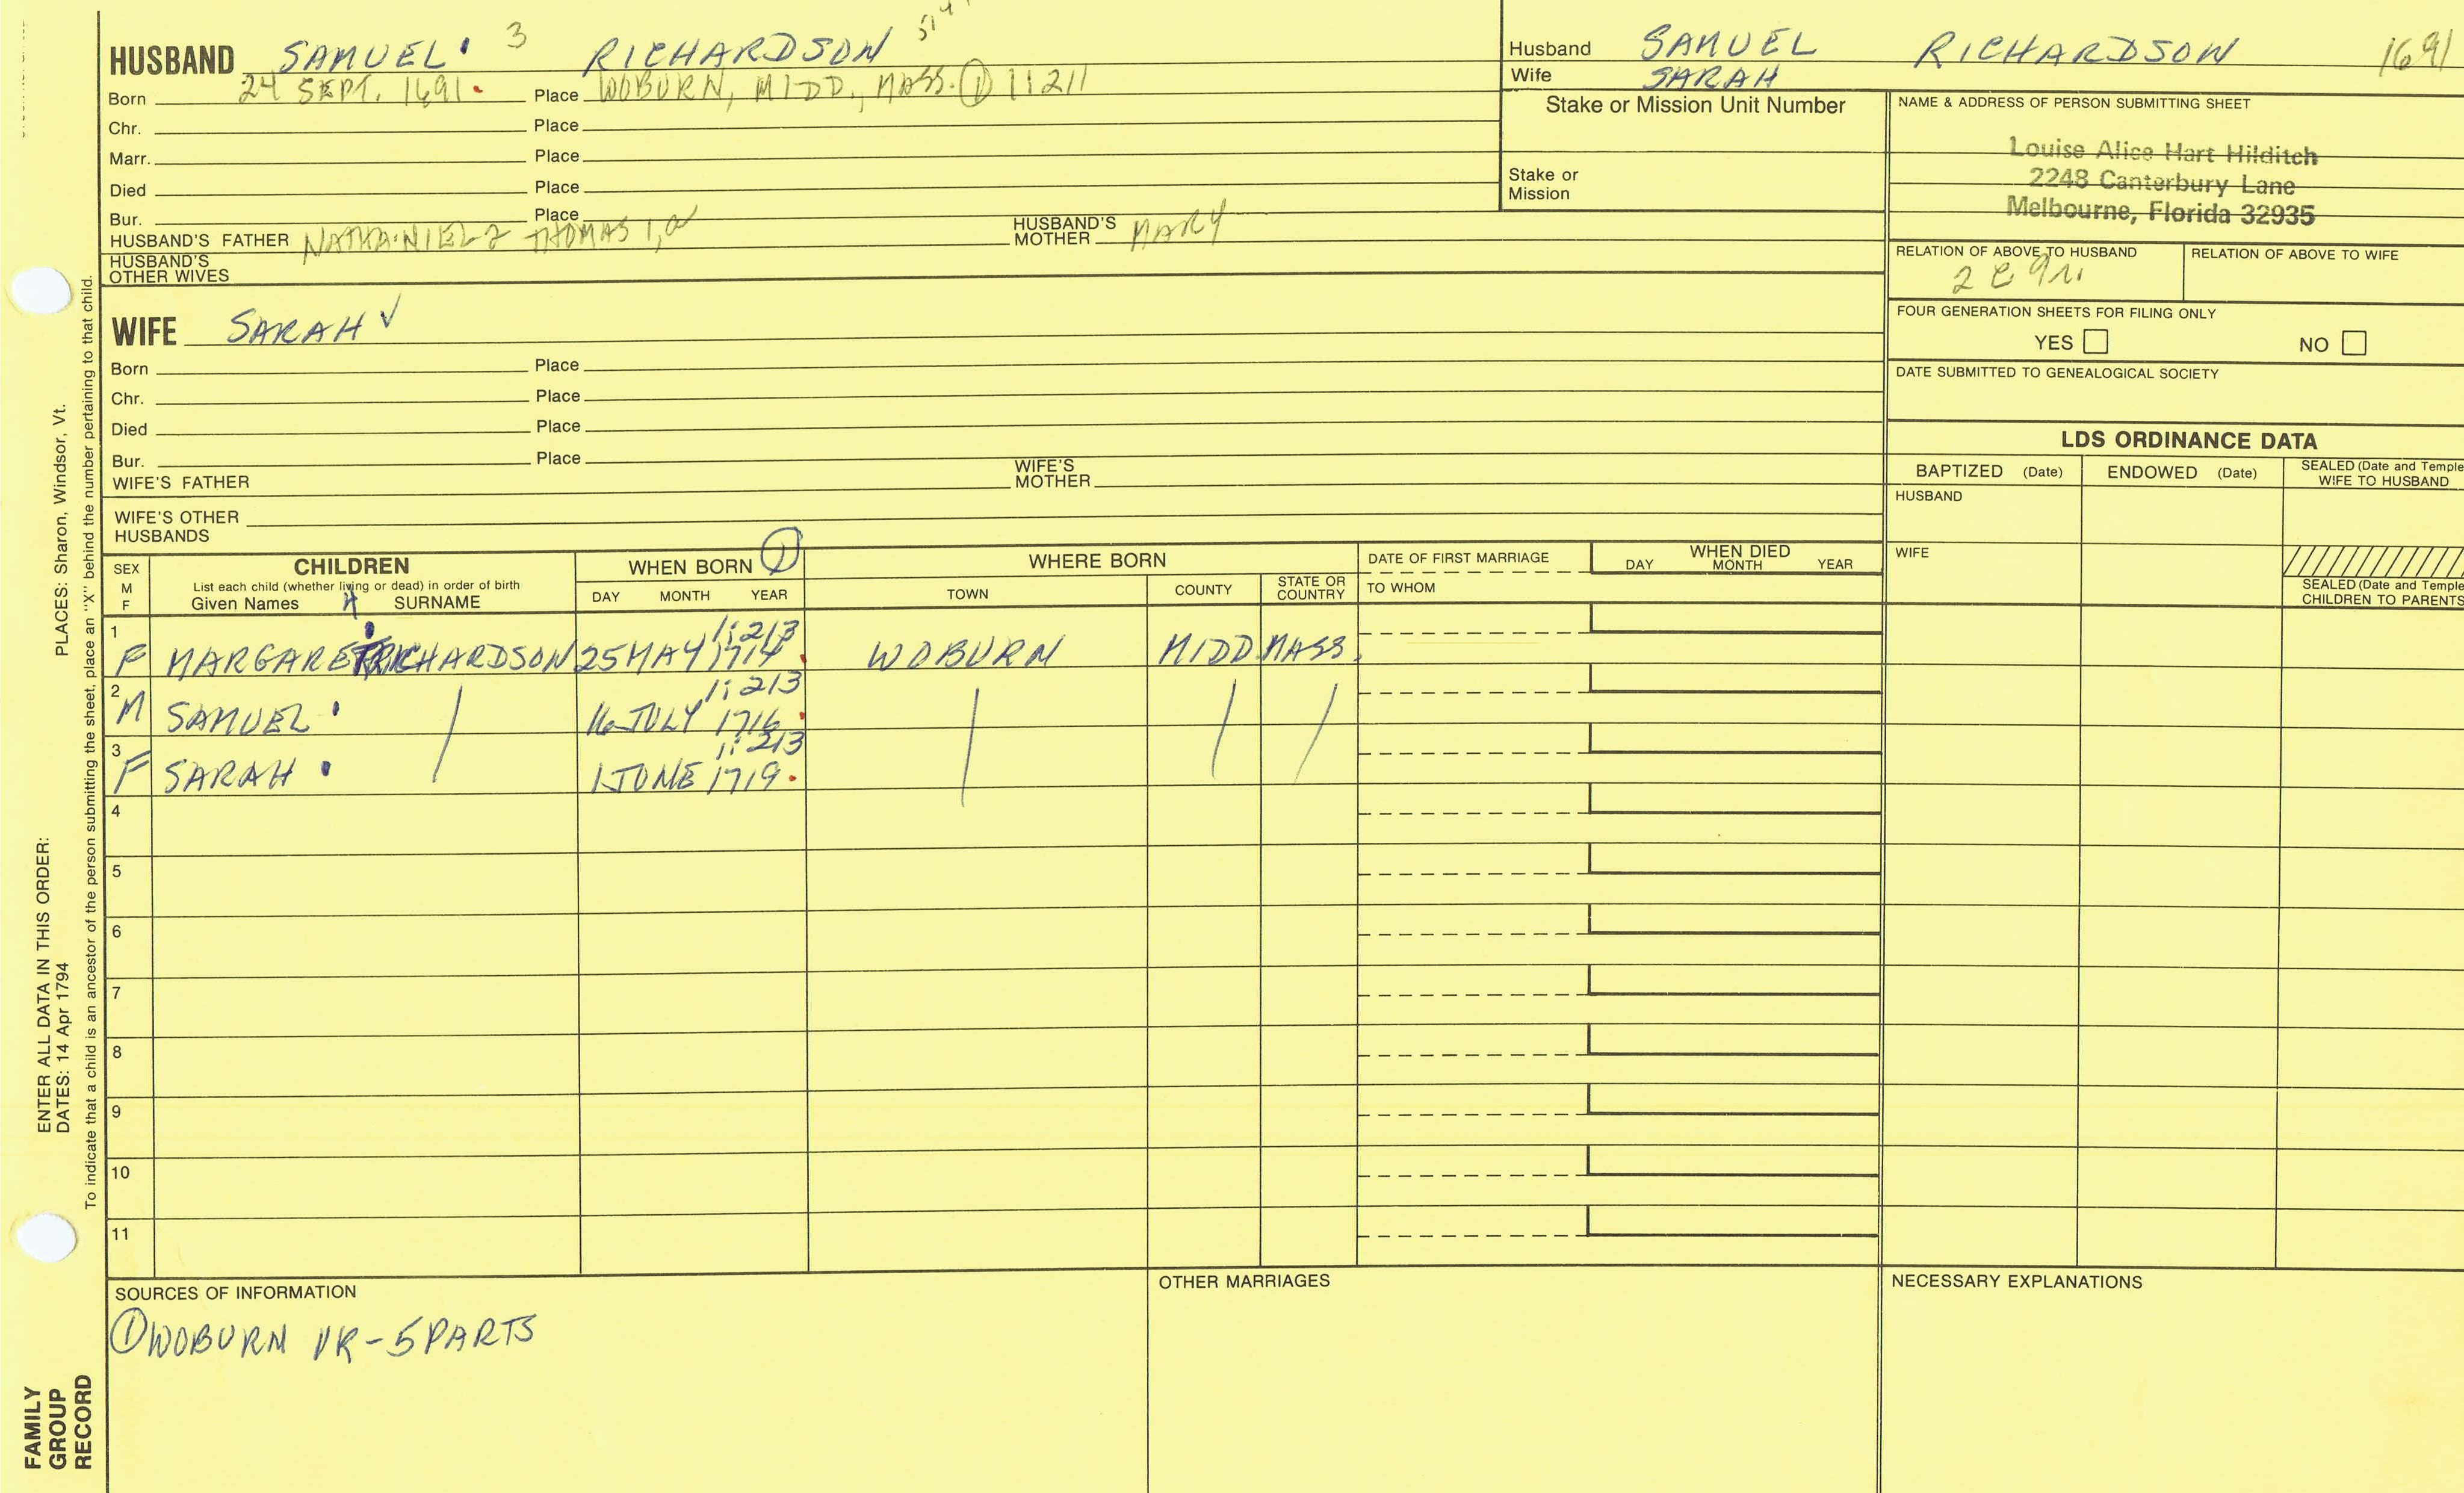 HUSBAND SAMUEL 3 RICHARDSON
Born 24 SEPT. 1691. Place WOBURN, MIDD., MASS. ① 1:211
Chr. Place
Marr. Place
Died Place
Bur. Place
HUSBAND'S FATHER NATHANIEL 2 THOMAS 1, HUSBAND'S MOTHER MARY
HUSBAND'S OTHER WIVES
WIFE SARAH ✓
Born Place
Chr. Place
Died Place
Bur. Place
WIFE'S FATHER WIFE'S MOTHER
WIFE'S OTHER HUSBANDS
Husband SAMUEL RICHARDSON 1691
Wife SARAH
Stake or Mission Unit Number
Stake or Mission
NAME & ADDRESS OF PERSON SUBMITTING SHEET
Louise Alice Hart Hilditch
2248 Canterbury Lane
Melbourne, Florida 32935
RELATION OF ABOVE TO HUSBAND RELATION OF ABOVE TO WIFE
FOUR GENERATION SHEETS FOR FILING ONLY
YES NO
DATE SUBMITTED TO GENEALOGICAL SOCIETY
LDS ORDINANCE DATA
BAPTIZED (Date) ENDOWED (Date) SEALED (Date and Temple
WIFE TO HUSBAND
HUSBAND
WIFE
SEALED (Date and Temple
CHILDREN TO PARENTS
SEX M F
CHILDREN
List each child (whether living or dead) in order of birth
Given Names SURNAME
WHEN BORN ①
DAY MONTH YEAR
WHERE BORN
TOWN COUNTY STATE OR COUNTRY
DATE OF FIRST MARRIAGE
TO WHOM
WHEN DIED
DAY MONTH YEAR
1 1:213
F MARGARET RICHARDSON 25 MAY 1714. WOBURN MIDD MASS.
2 1:213
M SAMUEL 16 JULY 1716.
3 1:213
F SARAH 1 JUNE 1719.
4
5
6
7
8
9
10
11
SOURCES OF INFORMATION
① WOBURN VR - 5 PARTS
OTHER MARRIAGES
NECESSARY EXPLANATIONS
ENTER ALL DATA IN THIS ORDER:
DATES: 14 Apr 1794 PLACES: Sharon, Windsor, Vt.
To indicate that a child is an ancestor of the person submitting the sheet, place an "X" behind the number pertaining to that child.
FAMILY
GROUP
RECORD